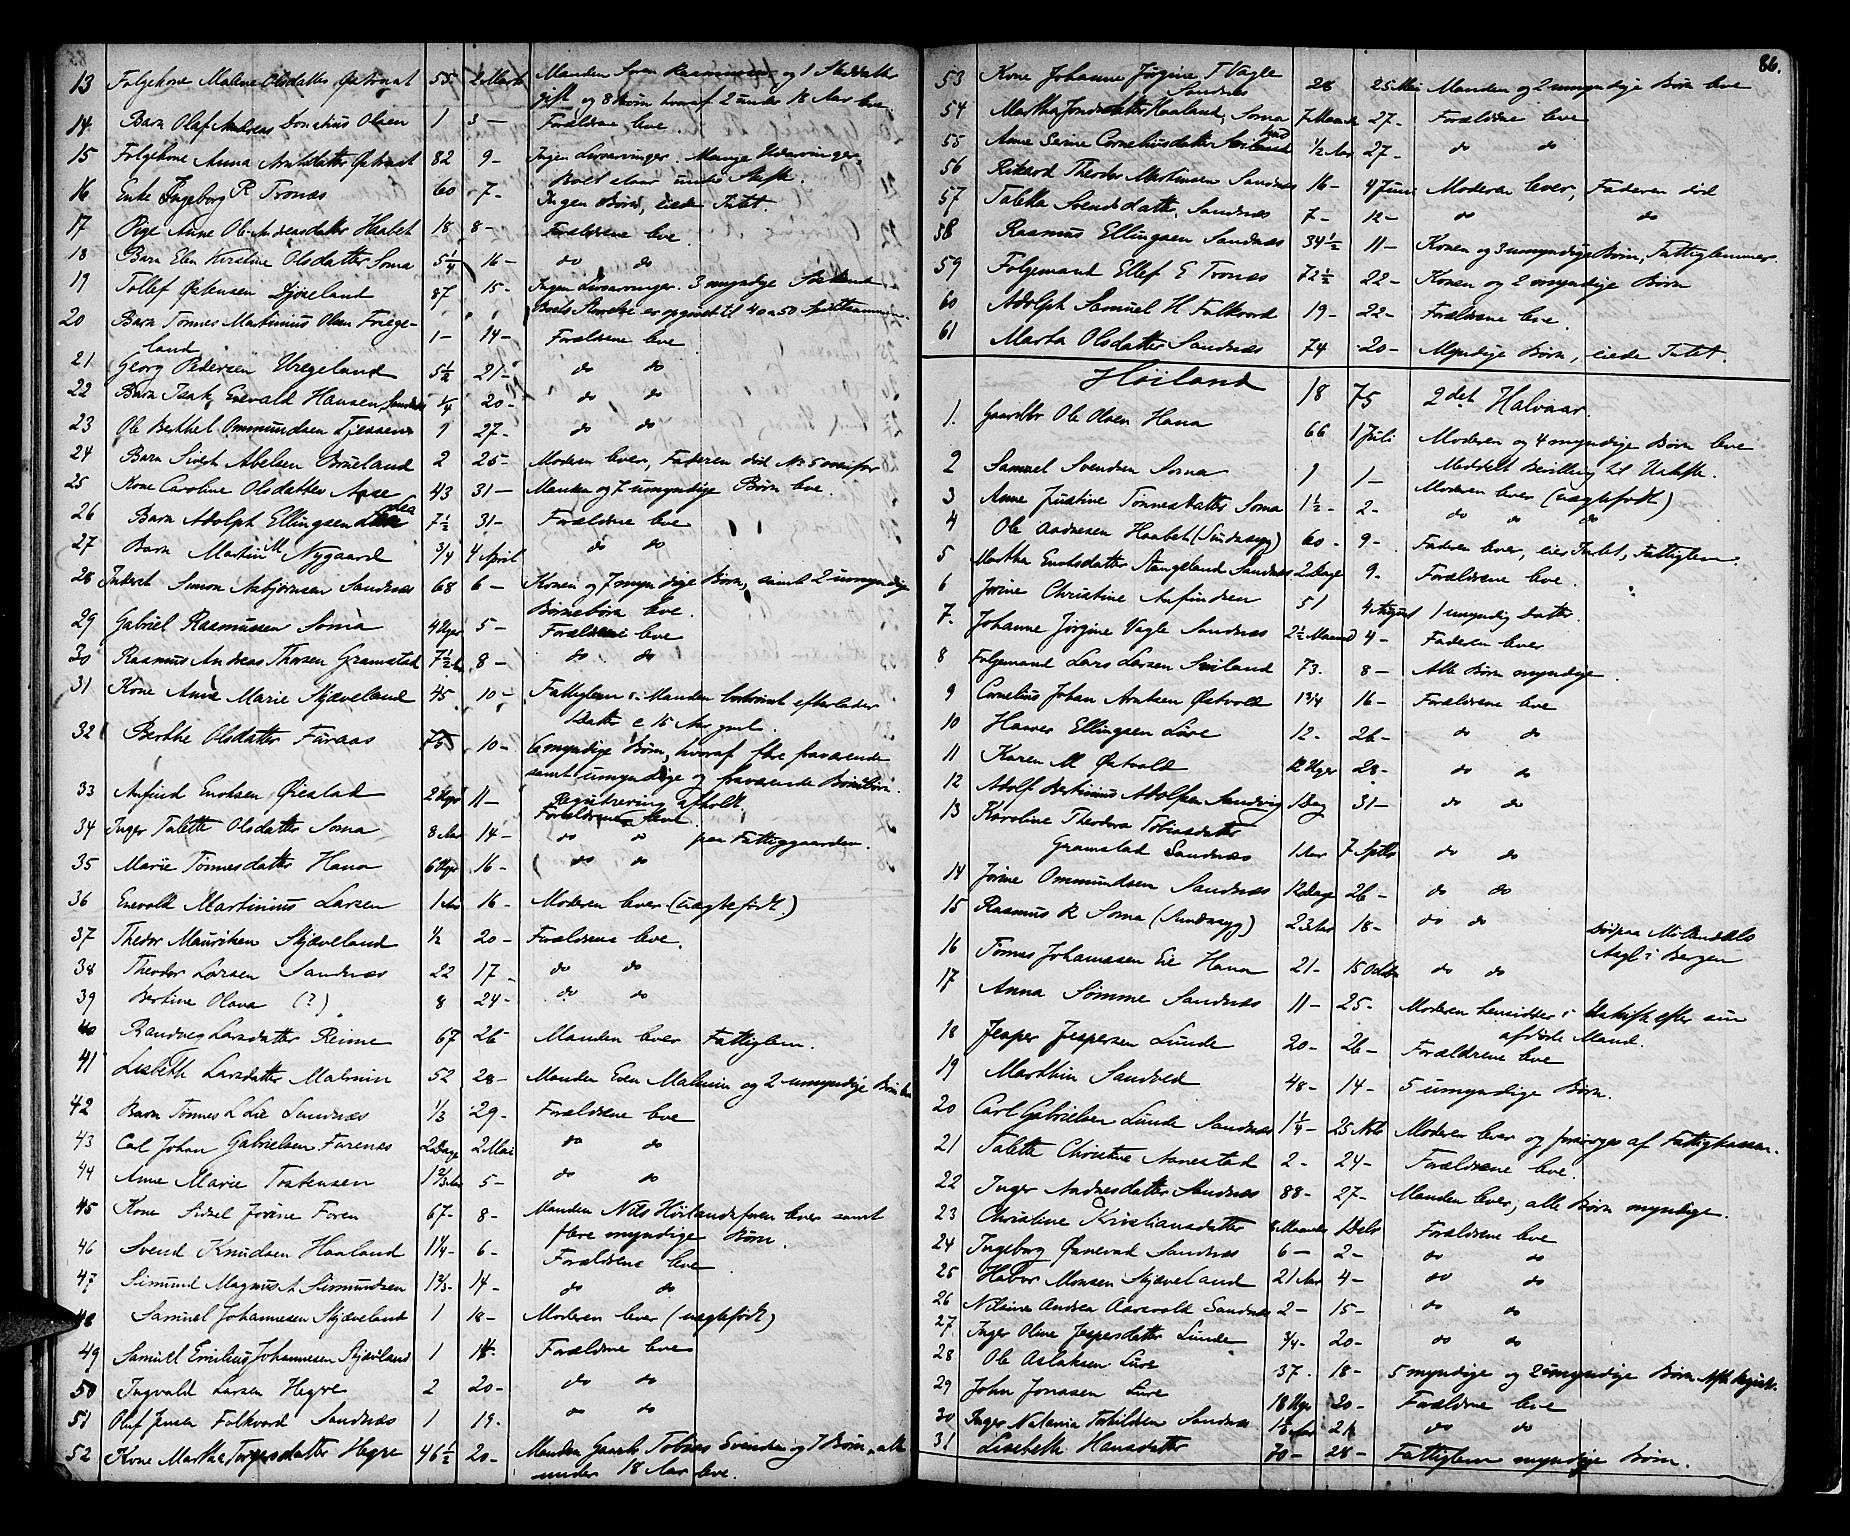 13 Folgekone Malene Olsdatter 55 2 Marts Manden Sven Rasmussen og 1 Steddatter
gift og 8 Børn hvoraf 2 under 18 Aar leve
14 Barn Olaf Andreas Donatius Olsen 1 3 — Forældrene leve.
15 Folgekone Anna 82 9 - Ingen Livsarvinger. Mange Udarvinger.
Boet staar under Skifte.
16 Enke Ingeborg P. Tronæs 60 7 - Ingen Børn, eiede Intet.
17 Pige Anne Ol. Andreasdatter Haabet 18 8 - Forældrene leve
18 Barn Elen Kirstine Olsdatter Soma 5 1/4 16 - do do
19 Tollef Østensen Djoseland 87 15 - Ingen Livsarvinger. 3 myndige
Boets er opgivet til 40 a 50
20 Barn Tønnes Martinius Olsen Foiege-
land 1 - 14 - Forældrene leve
21 Georg Pedersen Hregeland 5 1/2 21 - do do
22 Barn Isak Enevald Hansen Sandnæs 1/4 20 - do do
23 Ole Berthel Ommundsen 9 27 - do do
24 Barn Sivert Abelsen Brueland 2 25 - Moderen lever, Faderen død No 5 ovenfor
25 Kone Caroline Olsdatter Aase 43 31 — Manden og 7 umyndige Børn leve.
26 Barn Adolph Ellingsen 7 1/2 31 - Forældrene leve
27 Barn Martin M Nygaard 3/4 4 April do do
28 Inderst Simon Asbjørnsen Sandnæs 68 6 — Konen og 7 myndige Børn, samt 2 umyndige
Børnebørn leve.
29 Gabriel Rasmussen Soma 4 Uger 5 - Forældrene leve
30 Rasmus Andreas Thorsen Gramstad 7 1/2 8 - do do
31 Kone Anne Marie Skjæveland 45 10 - Fattiglem. Manden bortrømt efterlader
1 Datter c 15 Aar gml.
32 Berthe Olsdatter Furaas 75 10 - 6 myndige Børn, hvoraf flere fraværende
samt umyndige og fraværende Børnebørn.
Registrering afholdt.
33 Arfind Enoksen Øiestad 2 Uger 11 — Forældrene leve
34 Inger Talette Olsdatter Soma 8 Aar 14 - do do paa Fattiggaarden.
35 Marie Tønnesdatter Hana 6 Uger 16 - do do
36 Enevald Martinius Larsen 1 Aar 16 - Moderen lever (uægtefødt.)
37 Thedor Mauritsen Skjæveland 1/2 20 - Forældrene leve.
38 Theodor Larsen Sandnæs 22 17 do do
39 Bertine Olava (?) 8 24 - do do
40 Randveg Larsdatter Reime 67 26 - Manden lever Fattiglem.
41 Lisbeth Larsdatter Malmin 52 28 - Manden Even Malmin og 2 umyndige Børn leve
42 Barn Tønnes L Lie Sandnæs 1/3 29 - Forældrene leve
43 Carl Johan Gabrielsen Forenæs 2 Dage 2 Mai do do
44 Anne Marie Torstensen 1 2/3 Aar 5 - do do
45 Kone Sidsel Jorine Foren 67 - 8 - Manden Nils Høilandsforen lever samt
flere myndige Børn.
46 Svend Knudsen Haaland 1 1/4 - 6 - Forældrene leve
47 Simund Magnus A Simundsen 1 2/3 - 14 - do do
48 Samuel Johannesen Skjæveland 1 18 - Moderen lever (uægtefødt)
49 Samuel Emilius Johannesen Skjæveland 1 14 - Forældrene leve
50 Ingvald Larsen Hegre 2 20 - do do
51 Oluf Jensen Folkvord Sandnæs 1 19. - do do
52 Kone Martha Torgersdatter Hegre 46 1/2 20 - Manden Gaardb. Tobias Svendsen og 7 Børn, alle
under 18 Aar leve.
86.
53 Kone Johanne Jørgine T Vagle
Sandnæs 28 25 Mai Manden og 2 umyndige Børn leve
54 Martha Jonasdatter Haaland, Soma 7 Maaned 27 - Forældrene leve
55 Anne Serine Corneliusdatter 1/2 Aar 27 - do do
56 Rikard Theodor Martinsen Sandnæs 16 - 4 Juni Moderen lever, Faderen død
57 Taletta Svendsdatter, Sandnæs 7 - 12 - do do
58 Rasmus Ellingsen Sandnæs 34 1/2 11 - Konen og 3 umyndige Børn, Fattiglemmer.
59 Folgemand Ellef E Tronæs 72 1/2 22 - Konen og 2 myndige Børn
60 Adolph Samuel H. Folkvord 19 - 22 - Forældrene leve.
61 Marta Olsdatter Sandnæs 74 20 - Myndige Børn, eiede Intet.
Høiland 18 75 2det Halvaar
1. Gaardbr Ole Olsen Hana 66 1 Juli Moderen og 4 myndige Børn leve
Meddelt Bevilling til Uskifte.
2 Samuel Svendsen Soma 9 1 — Moderen lever (uægtefødt)
3 Anne Justine Tønnesdatter Soma 1 1/2 - 2 - do do do
4 Ole Aadnesen Haabet (Sindssyg) 60 - 9 - Faderen lever, eier Intet, Fattiglem.
5 Martha Enoksdatter Aungeland Sandnæs 2 Dage 9 - Forældrene leve.
6 Jorine Christine Arfindsen 51 4 August 1 umyndig Datter
7. Johanne Jørgine Vagle Sandnæs 2 1/2 Maaned 4 - Faderen lever
8 Folgemand Lars Larsen Sviland 73. 8 - Alle Børn myndige.
9 Cornelius Johan Arntsen Østvold 1 3/4 16 - Forældrene leve
10 Hannes Ellingsen Lure 12 - 26 - do do
11 Karen M Østvold 12 Uger 28 - do do
12 Adolf Bertinius Adolfsen Sandvig 1 Dag 31 — do do
13 Karoline Theodora Tobiasdatter
Gramstad Sandnæs 1 Aar 7 Septbr do do
14 Jorine Ommundsen Sandnæs 12 Dage 26 - do do
15 Rasmus R Soma (Sindssyg) 23 Aar 18 - do do Død paa Møllendals
Asyl i Bergen
16 Tønnes Johannesen Eie Hana 21 - 15 Octbr do do
17 Anna Sømme Sandnæs 11 - 25 - Moderen hensidder i Uskifte efter sin
afdøde Mand.
18 Jesper Jespersen Lunde 20 - 26 - Forældrene leve
19 Marthin Sandved 48 - 14 - 5 umyndige Børn.
20 Carl Gabrielsen Lunde Sandnæs 1 1/4 - 25 Novb Moderen lever og forsørges af Fattigkassen.
21 Talette Christine Aanestad 2 - 24 - Forældrene leve.
22 Inger Andreasdatter Sandnæs 88 - 27 - Manden lever, alle Børn myndige.
23 Christine Kristiansdatter 8 Maaneder 1 Debr Forældrene leve
24 Ingeborg Øsnerad Sandnæs 6 — 2 - do do
25 Haavor Monsen Skjæveland 21 Aar 4 - do do
26 Nilaine Andrea Aarevold Sandnæs 2 - 15 - do do
27 Inger Oline Jespersdatter Lunde 3/4 - 20 - do do
28 Ole Aslaksen Lure 37. 18 - 5 myndige og 2 umyndige Børn
29 John Jonasen Lure 18 Uger 20 - Forældrene leve
30 Inger Natania Torkildsen Sandnæs 21 do do
31 Lisebeth Hansdatter 70 - 28 - Fattiglem myndige Børn.